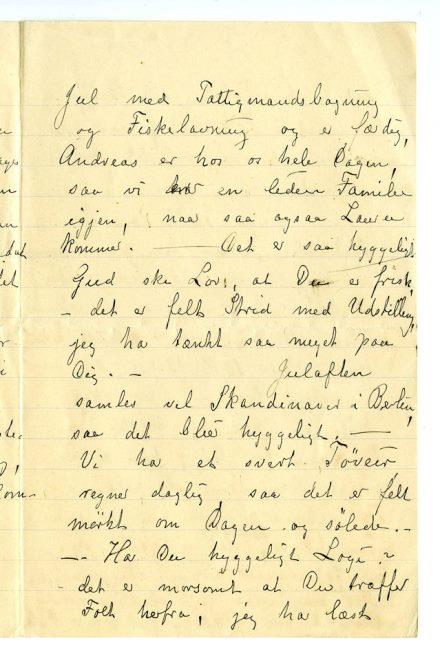 Jul med Fattigmandsbagning
og Fiskelavning og er færdig,
Andreas er hos os hele Dagen,
saa vi er en liden Familie
igjen, naar saa ogsaa Laura
kommer. — Det er saa hyggeligt
Gud ske Lov, at Du er frisk,
- det er fælt Strid med Udstilling,
jeg ha tænkt saa meget paa
Dig. - Julaften
samles vel Skandinaver i Berlin,
saa det blir hyggeligt. —
Vi ha et svert Töveir
regner daglig, saa det er fælt
mörkt om Dagen og sölede. -
- Har Du hyggeligt Logi?
det er morsomt at Du træffer
Folk herfra, jeg ha læst